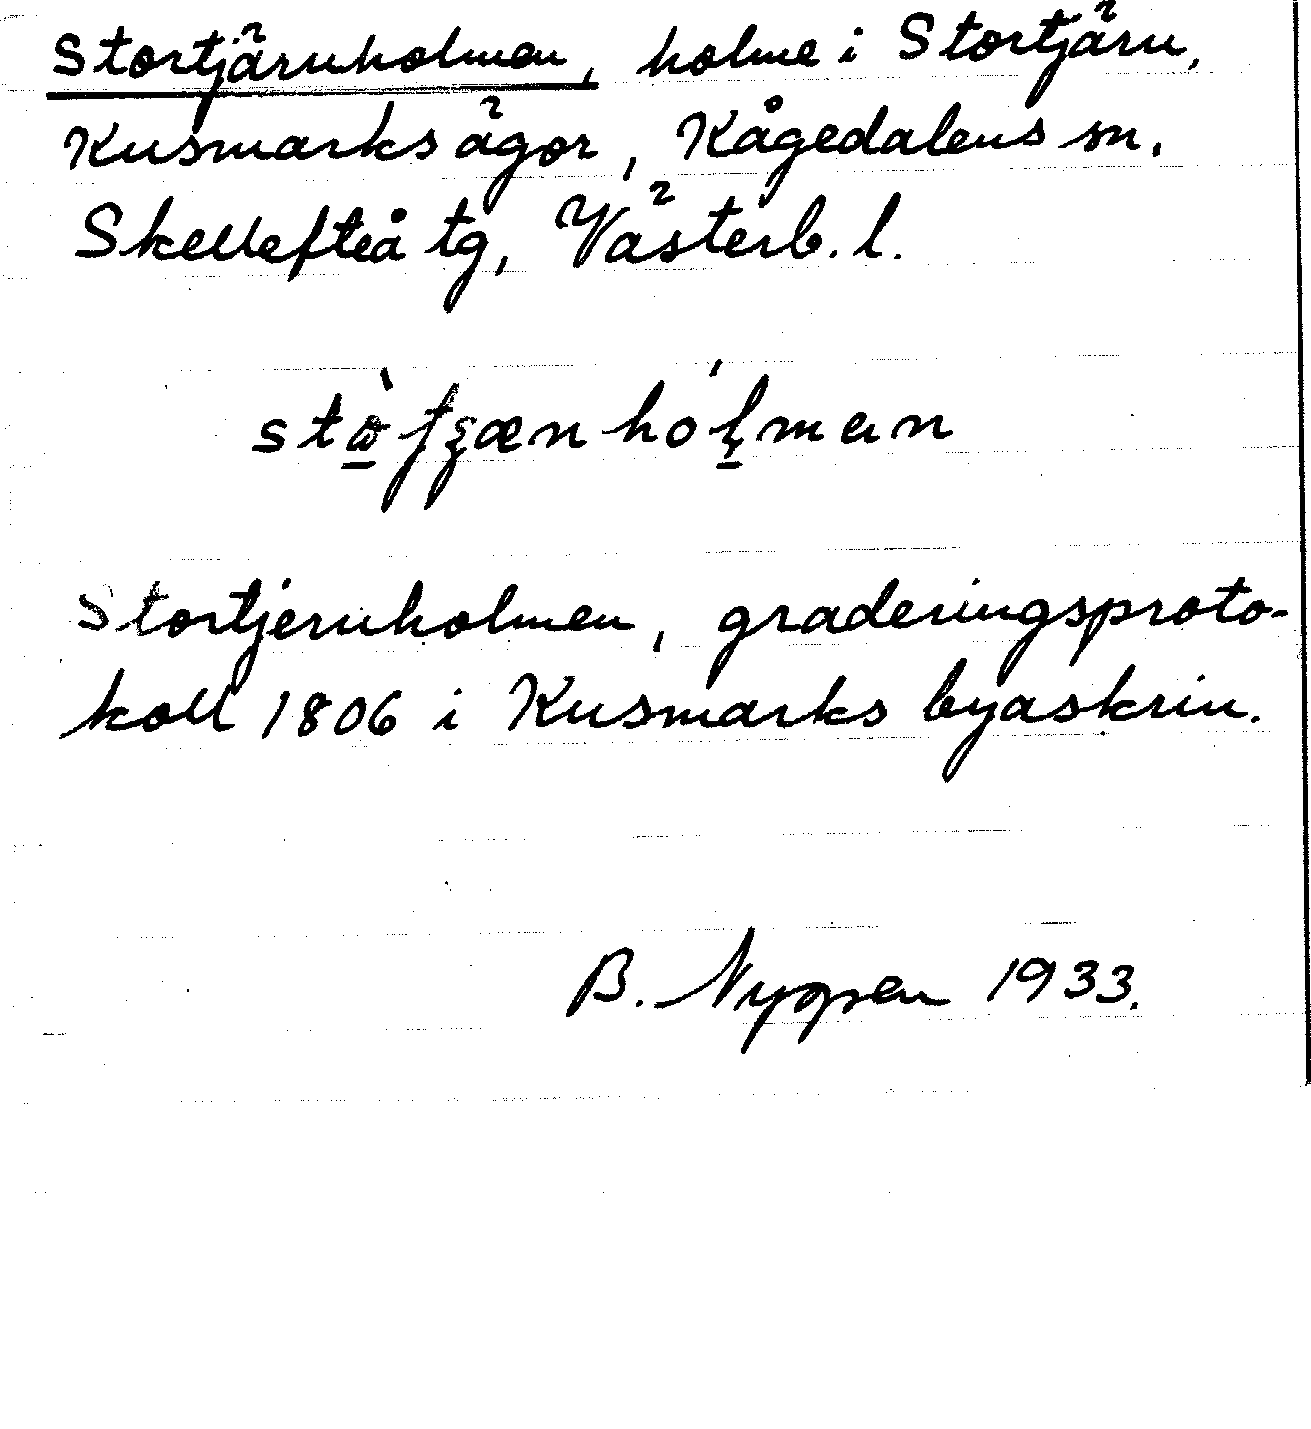 Stortjärnholmen, holme i Stortjärn,
Kusmarks ägor, Kågedalens sn.
Skellefteå tg, Västerb. l.
Stortjernholmen, graderingsproto-
koll 1806 i Kusmarks byaskrin.
B. Nygren 1933.